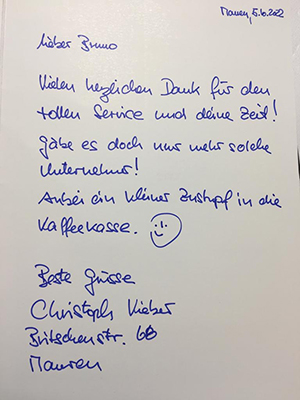 Mauren, 5.6.2022
Lieber Bruno
Vielen herzlichen Dank für den
tollen Service und deine Zeit!
Gäbe es doch nur mehr solche
Unternehmer!
Anbei ein kleiner Zustupf in die
Kaffeekasse. :)
Beste Grüsse
Christoph Kieber
Britschenstr. 66
Mauren